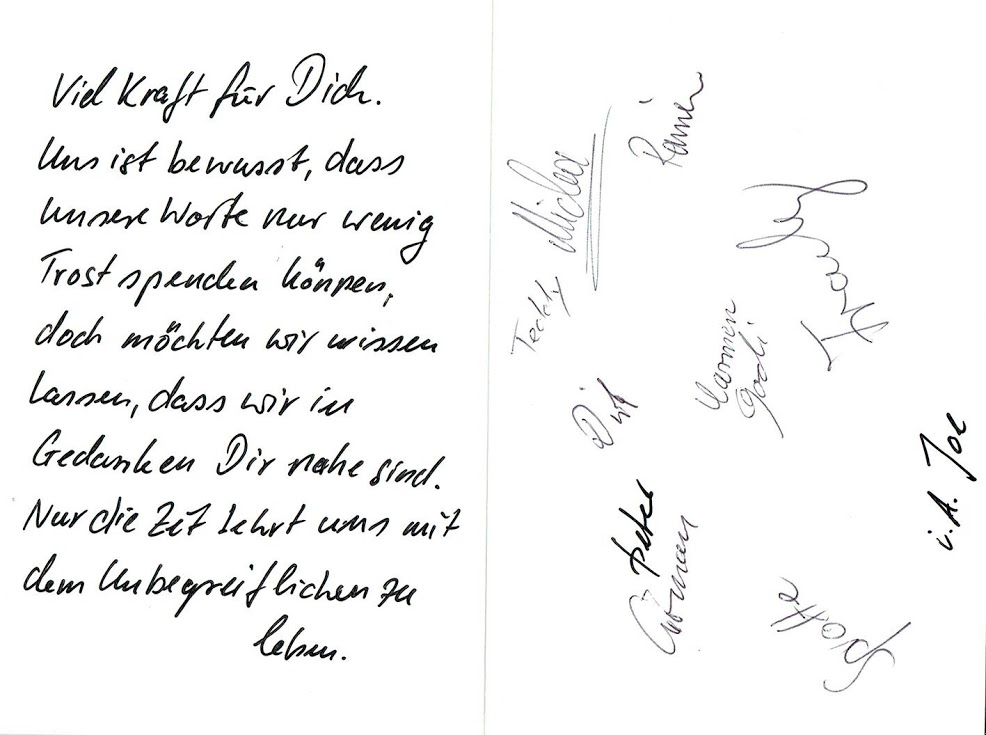 Viel Kraft für Dich.
Uns ist bewusst, dass
unsere Worte nur wenig
Trost spenden können,
doch möchten wir wissen
lassen, dass wir in
Gedanken Dir nahe sind.
Nur die Zeit lehrt uns mit
dem Unbegreiflichen zu
leben.
Rainer
Teddy
Dirk
Peter
i. A. Joe